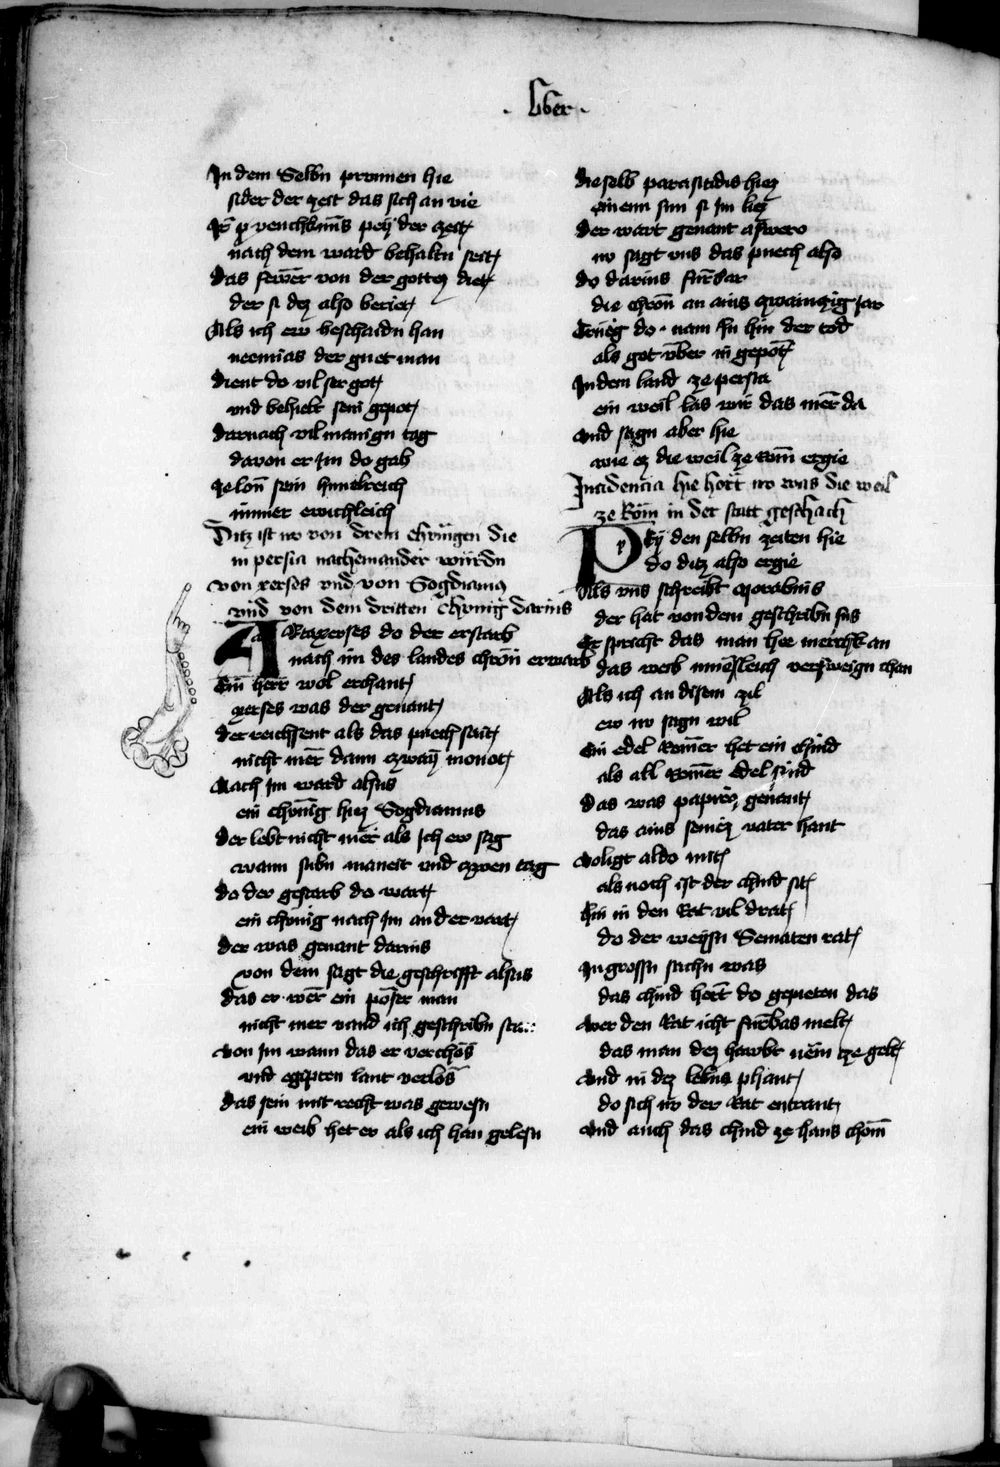 · Liber ·
In dem Selbn prunnen hie
sider der zeit das sich an vie
nach dem ward behaltn seitt
das fewer von der gottez diett
der si dez also beriett
Als ich ew beschaidn han
neemias der guet man
dient do vil ser gott
vnd behielt seni gepott
darnach vil manign tag
davon er Im do gab
ze lon sein himelreich
immer ewichleich
Ditz ist nw von drein chunigen die
in persia nacheinander wurdn
von xerses vnd von Sogdianus
vnd von dem dritten chunig darius
ARtaxerses do der erstarb
nach im des landes chron erwarb
Ein herr wol erchantt
xerses was der genantt
der reichsent als das puech sait
nicht mer dann czway monott
Nach Im ward alsus
ein chonig hiez Sogdianus
der lebt nicht mer als Ich ew sag
wann subn maneit vnd czwen tag
do der gestarb do wartt
ein chonig nach Im an der vartt
der was genant darius
von dem sagt die geschrifft alsus
das er wer ein poser man
nicht mer vand ich geschribn
von Im wann das er verchos
vnd egipten lant verlos
das sein mit recht was gewesn
ein weib het er als ich han gelesn
die selb parasitidis hiez
ainenn sun si Im liez
der wart genant aswero
nw sagt vns das puech also
do darius furbar
die chron an ains czwainczig Jar
Trueg do · nam In hin der tod
als got vber in gepott
In dem land ze persia
ein weil las wir das mer da
vnd sagn aber hie
wie ez die weil ze Rom ergie
Incidencia hie hort nw was die weil
ze Rom in der statt geschach
PEy den selbn zeiten hie
do ditz also ergie
Als vnns schreibt
der hat von dem geschribn sus
Er spricht das man hie merchk an
das weib nicht versweign chan
Als ich an disem zil
ew nw sagn wil
Ein edel Romer het ein chind
als all Romer edel sind
das was genantt
das ains seinez vater hant
voligt aldo mitt
als noch ist der chind sit
Hin in den Rat vil dratt
do der weysn Senaten ratt
In grossn sachn was
das chind hort do gepieten das
wer den Rat icht furbas melt
das man dez hawbt nem ze gelt
vnd in dez lebns phant
do sich nw der Rat entrant
vnd auch das chind ze haus chom